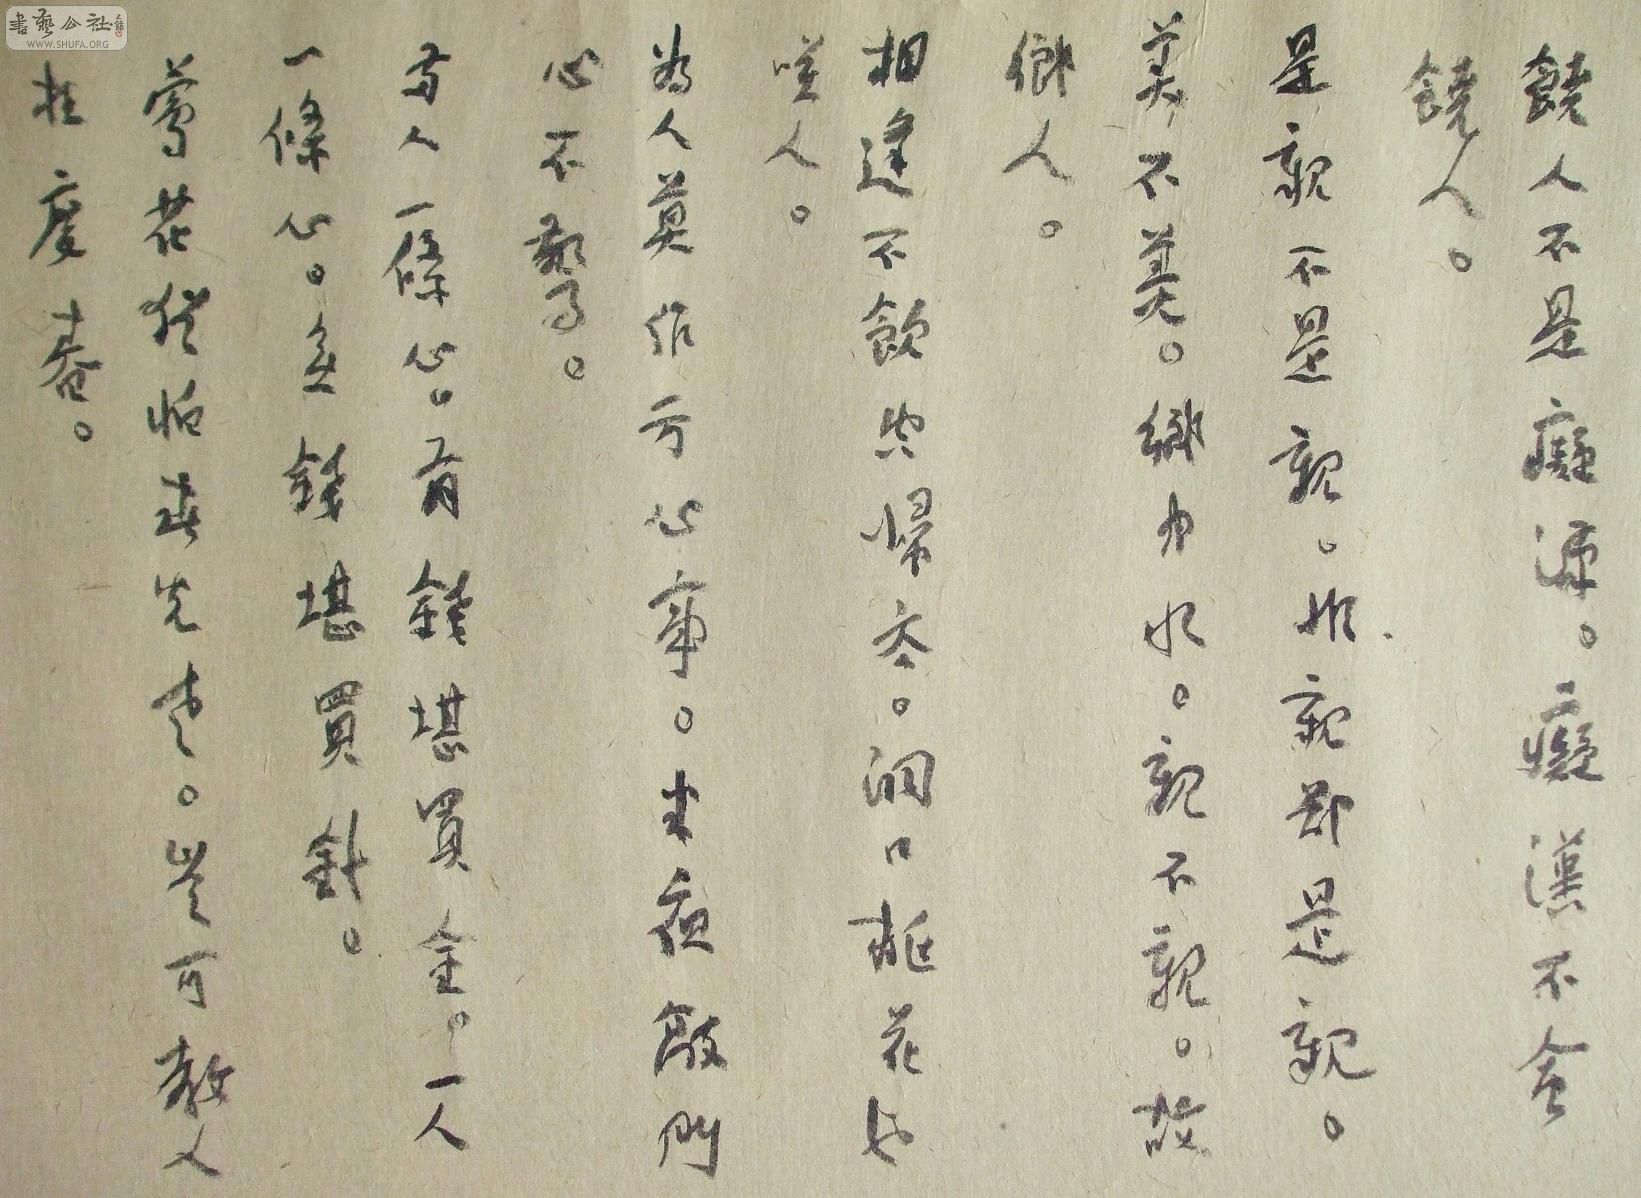 書藝公社
WWW.SHUFA.ORG
饒人不是癡漢。癡漢不會
饒人。
是親不是親。非親卻是親。
美不美。鄉中水。親不親。故
鄉人。
相逢不飲空歸去。洞口桃花也
咲人。
為人莫作亏心事。半夜敲門
心不驚。
兩人一條心。有錢堪買金。一人
一條心。無錢堪買針。
鶯花猶怕春光老。豈可教人
枉度春。